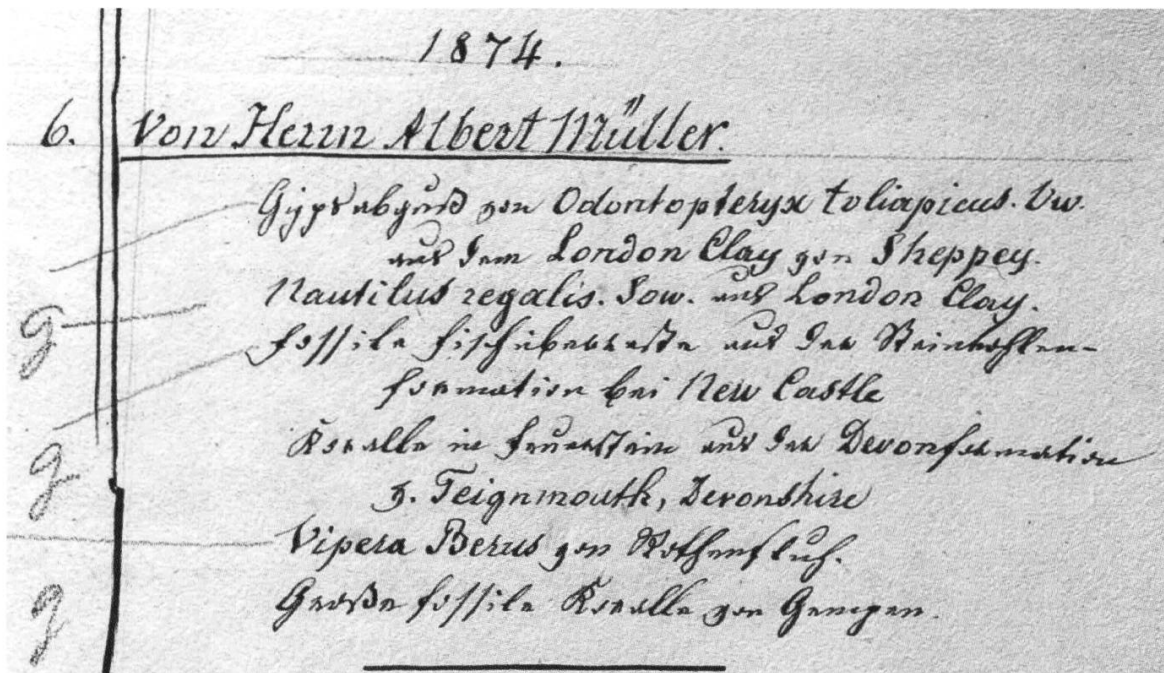 1874.
6. Von Herrn Albert Müller.
Gypsabguß von Odontopteryx toliapicus. Ow.
aus dem London Clay von Sheppey.
g Nautilus regalis. Sow. aus London Clay.
Fossile Fischüberreste aus der Steinkohlen-
formation bei New Castle
g Koralle in Feuerstein aus der Devonformation
v. Teignmouth, Devonshire
Vipera Berus von Rothenfluh.
g Große fossile Koralle von Gempen.